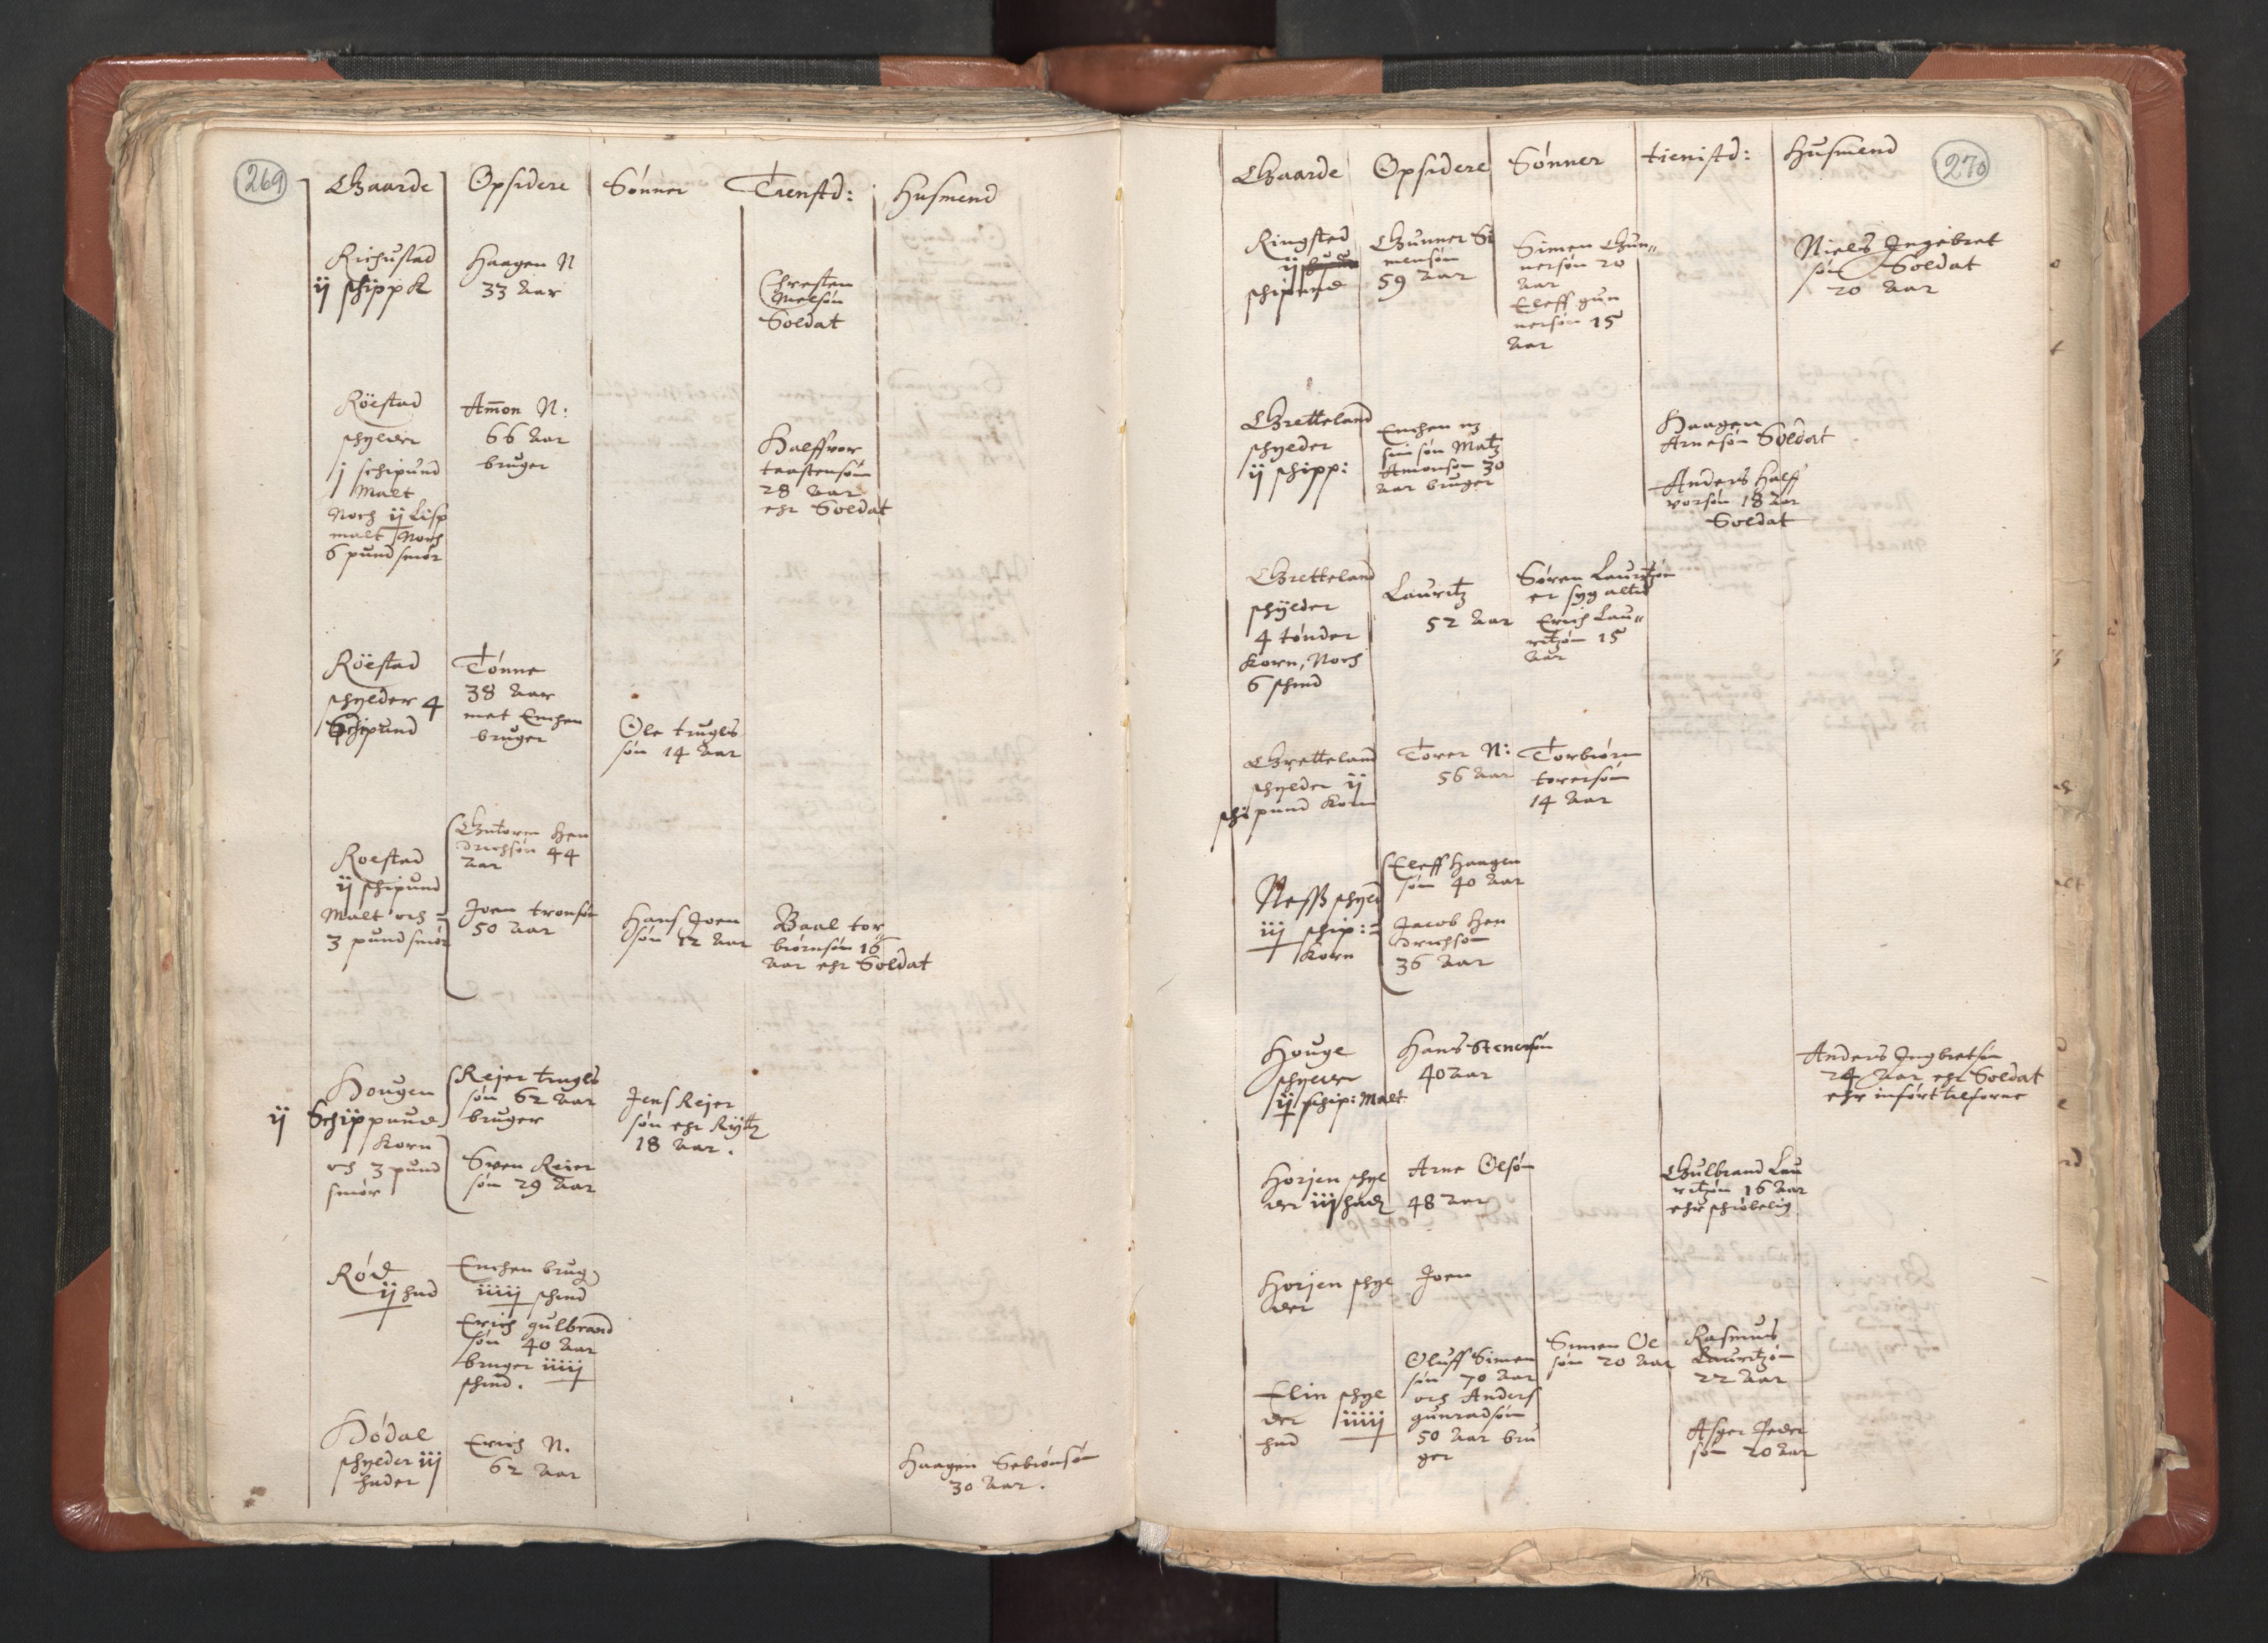 269
Gaarde Opsidere Sønner Tienstd: Husmend
Richustad
ij schippd
Haagen N
33 Aar
Chresten
Nielsøn
Soldat
Röestad
schylder
j schipund
Malt
Noch ij Lisp
malt Noch
6 pund smör
Amon N:
66 Aar
bruger
Halffvor
taastensøn
28 Aar
ehr Soldat
Röestad
schylder 4
Schipund
Tønne
38 Aar
met Enchen
bruger
Ole trugls
søn 14 Aar
Roestad
ij schipund
Malt och
3 pund smør
Gutorm Hen
drichsøn 44
Aar
Joen tronsøn
50 Aar
Hans Joen
søn 12 Aar
Baal tor
biørnsøn 16
Aar ehr Soldat
Hougen
ij Schippund
Korn
och 3 pund
smør
Rejer trugls
søn 62 Aar
bruger
Sven Reier
søn 29 Aar
Jens Rejer
søn ehr Rÿttr
18 Aar.
Rød
ij hud
Enchen brug
iiiij schind
Erich gulbrand
søn 40 Aar
bruger iiiij
schind.
Hödal
schylder iij
huder
Erich N.
62 Aar
Haagen Sebiønsøn
30 Aar.
270
Gaarde Opsidere Sønner tienistd: Husmend
Ringsted
ij
schipund
Gunner Si
mensøn
59 Aar
Simen Gun„
nersøn 20
Aar
Eleff gun
nersøn 15
Aar
Niels Ingebret
søn Soldat
20 Aar
Gretteland
schylder
ij schipp:
Enchen
sin søn Matz
Amonsøn 30
Aar bruger
Haagen
Arnesøn Soldat
Anders Half
vorsøn 18 Aar
Soldat
Gretteland
schÿlder
4 tønder
Korn, Noch
6 schind
Lauritz
52 Aar
Søren Lauritzøn
er syg altid
Erich Lau„
ritzøn 15
Aar
Gretteland
schylder ij
schipund Korn
Torer N:
56 Aar
Torbiørn
torersøn
14 Aar
Neß schyld
iij schip:
Korn
Eleff Haagen
søn 40 Aar
Jacob Hen
drichsøn
36 Aar
Houge
schylder
ij schip: Malt
Hans Stenersøn
40 Aar
Anders Ingbretsøn
24 Aar ehr Soldat
ehr inført tilforne
Horjen schyl
der iij hudr
Arne Olsøn
48 Aar
Gulbrand Lau
ritzøn 16 Aar
ehr schrøbelig
Horjen schyl
der
Joen
Elin schyl
der iiiij
hud
Oluff Simen
søn 70 Aar
och Anders
gunradsøn
50 Aar bru
ger
Simen Ol
søn 20 Aar
Rasmus
Lauritzøn
22 Aar
Asger Peder
søn 20 Aar